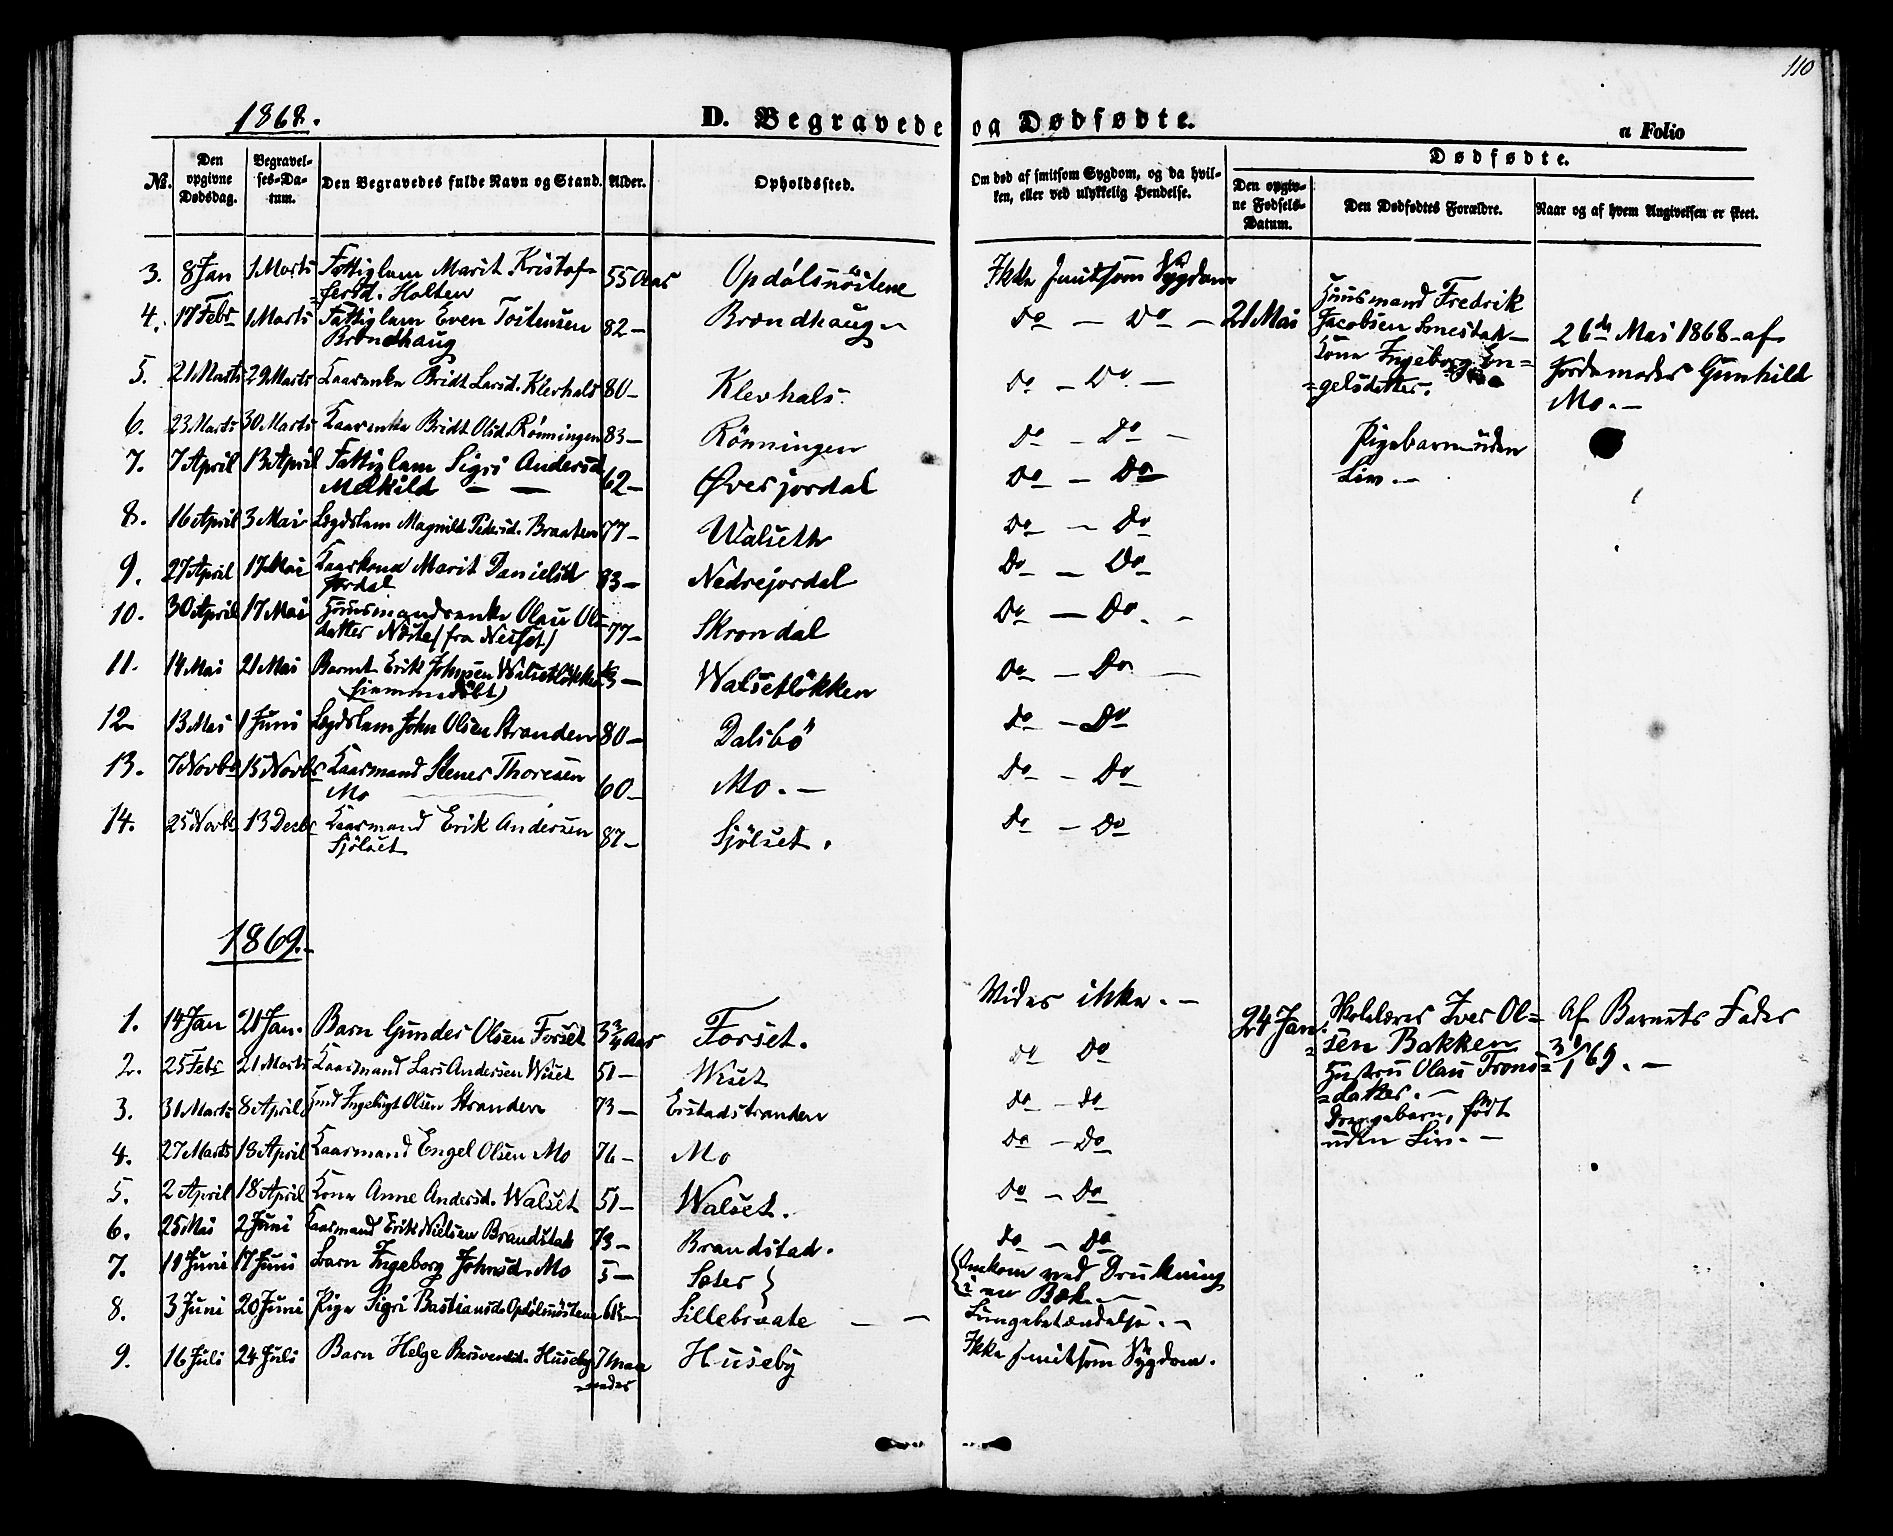 110
1868.
D. Begravede og Dødfødte.
a Folio
No. Den opgivne Dødsdag. Begravelses-Datum. Den Begravedes fulde Navn og Stand. Alder. Opholdssted. Om død af smitsom Sygdom, og da hvilken, eller ved ulykkelig Hendelse. Dødfødte. Den opgivne Fødsels-Datum. Den Dødfødtes Forældre. Naar og af hvem Angivelsen er skeet.
3. 8 Jan 1 Marts Fattiglem Marit Kristof= 55 Aar Opdølsnöstene Ikke smitsom Sygdom
=fersd. Holten
4. 17 Febr 1 Marts Fattiglem Even Tostensen 82 – Brandhaug – Do – Do –
Brandhaug
5. 21 Marts 29 Marts Kaarenke Bridt Larsd. Klevhals 80 – Klevhals. Do – Do –
6. 23 Marts 30 Marts Kaarenke Bridt Olsd. Rönningen 83 – Rönningen Do – Do –
7. 7 April 13 April Fattiglem Sigri Andersd. 62 – Øvrejordal Do – Do
8. 16 April 3 Mai Legdslem Magnild Pedersd. Braaten 77 – Walseth Do – Do
9. 27 April 17 Mai Kaarkone Marit Danielsd. 83 – Nedrejordal Do – Do
Jordal
10. 30 April 17 Mai Huusmandsenke Olau Ols= 77 – Skrondal Do – Do –
datter Næste (fra Nesset)
11. 14 Mai 21 Mai Barnet Erik Johnsen Walsetløkken Walsetløkken Do – Do –
(hjemmedöbt)
12 13 Mai 1 Juni Legdslem John Olsen Stranden 80 – Dalsbö Do – Do
13. 7 Novbr 15 Novbr Kaarmand Stener Thoresen 60 – Mo. – Do – Do
Mo
14. 25 Novbr 13 Decbr Kaarmand Erik Andersen 87 – Sjölset. Do – Do
Sjölset
21 Mai Huusmand Fredrik
Jacobsen Smestak –
Kone Ingeborg En=
=gelsdatter.
Pigebarn uden
Liv. –
26de Mai 1868 – af
Jordemoder Gunhild
Mo. –
1869. –
1. 14 Jan 21 Jan. Barn Gunder Olsen Forset 3 3/4 Aar Forset. Vides ikke. –
2. 25 Febr 21 Marts Kaarmand Lars Andersen Wiset 51 – Wiset Do Do
3. 31 Marts 8 April Ingebrigt Olsen Stranden 73 – Eistadstranden Do – Do
4. 27 Marts 18 April Kaarmand Engel Olsen Mo 76 – Mo Do – Do
5. 2 April 18 April Kone Anne Andersd. Walset 51 – Walset. Do – Do
6. 25 Mai 2 Juni Kaarmand Erik Nielsen Brandstad 73 – Brandstad. Do – Do
7. 11 Juni 17 Juni Barn Ingeborg Johnsd. Mo 5 – Sæter } { Omkom ved Drukning
i en Bæk. –
8. 3 Juni 20 Juni Pige Sigri Bastiansd. Opdölsnöstene Sillebraate – – Lungebetændelse. –
9. 16 Juli 24 Juli Barn Helge Huseby 7 Maa= Huseby Ikke smitsom Sygdom.
=neder
24 Jan. Skolelærer Iver Ol=
=sen Bakken
Hustru Olau Trons=
=datter. –
Drengebarn, født
uden Liv. –
Af Barnets Fader
31/1 69. –